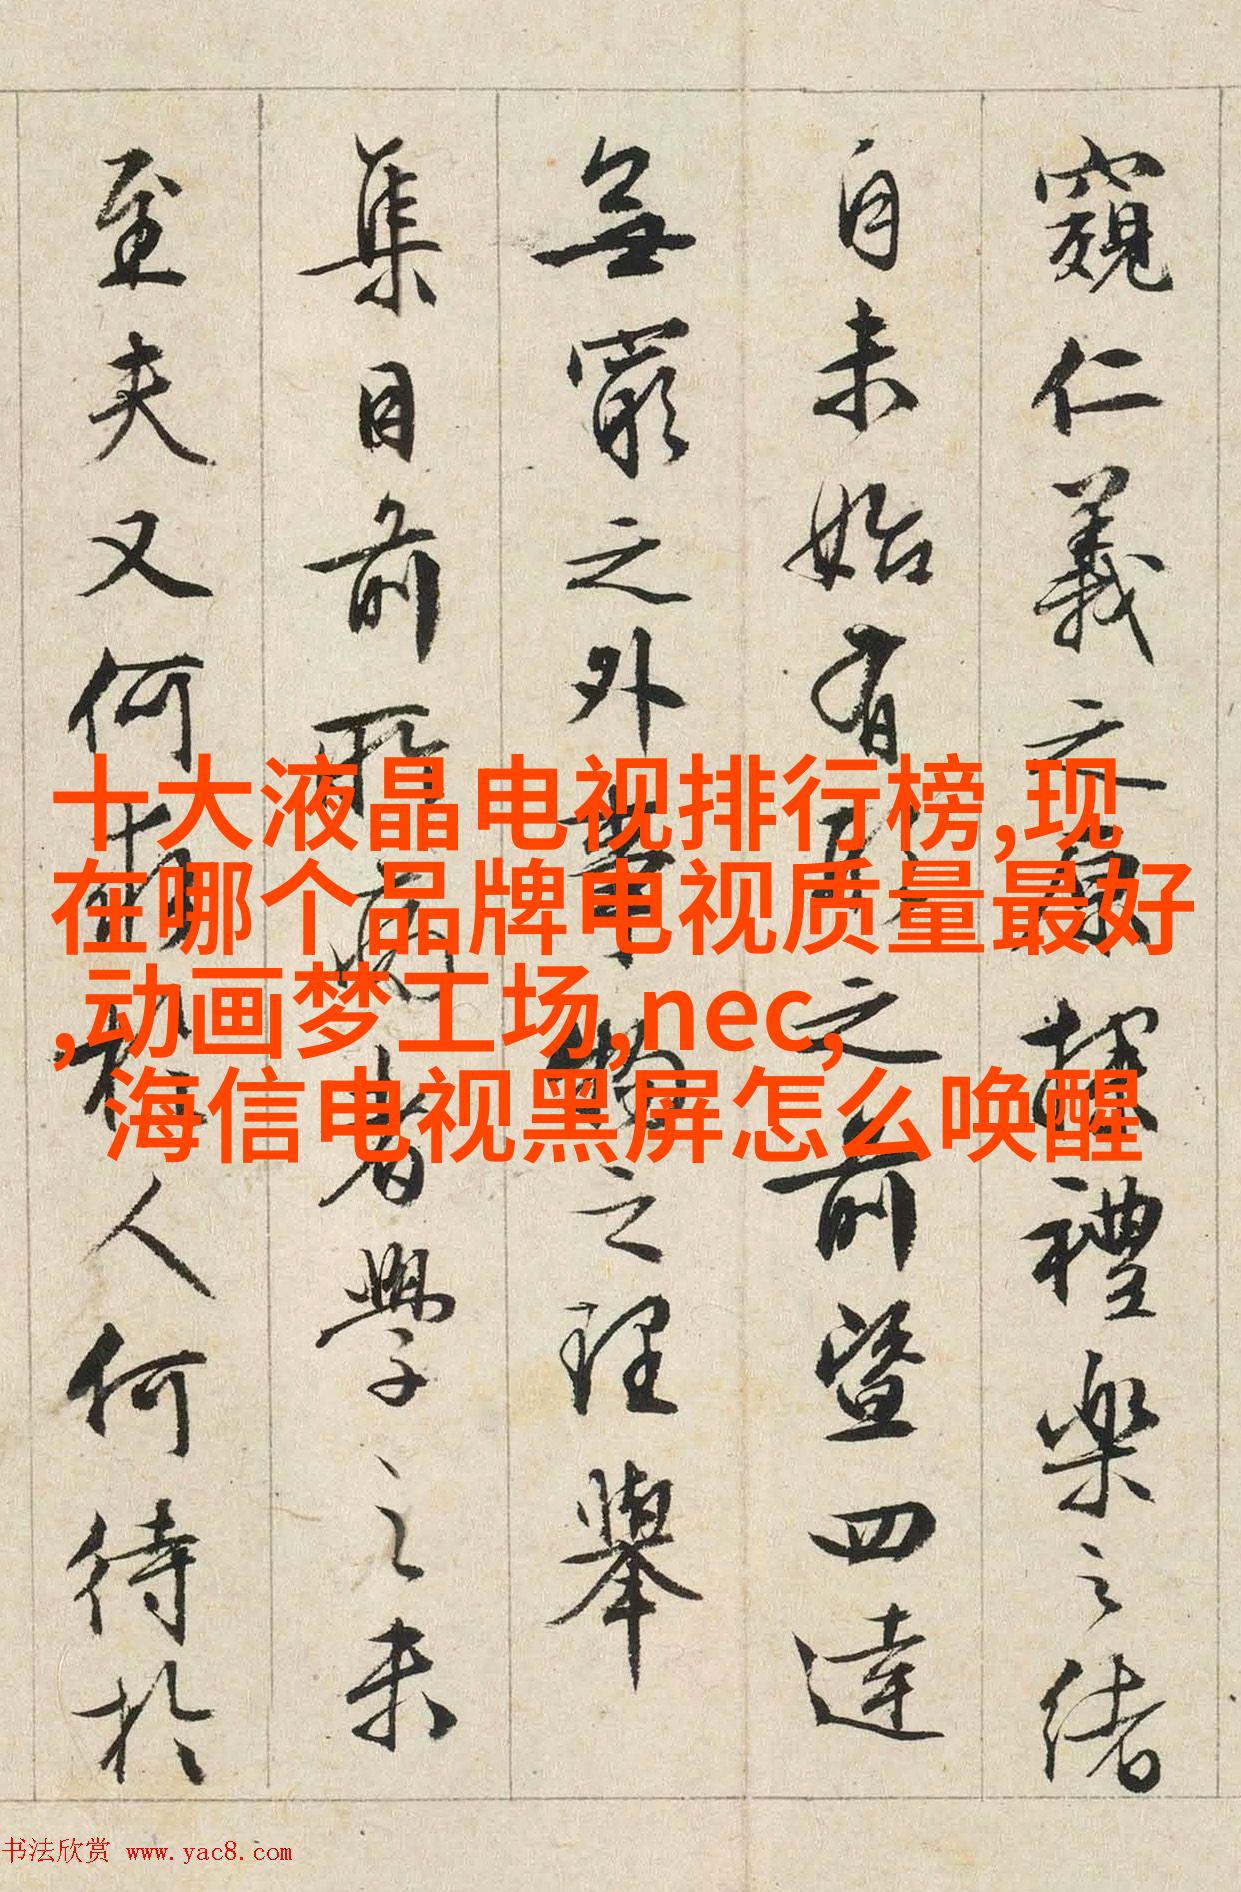 窺仁義之原探禮樂之緒
自未始有形之前暨四達
無窮之外事物之理舉
集目前所病者學之未
至夫又何於人何待於
十大液晶电视排行榜,现
在哪个品牌电视质量最好
,动画梦工场,nec,
海信电视黑屏怎么唤醒
书法欣赏 www.yac8.com